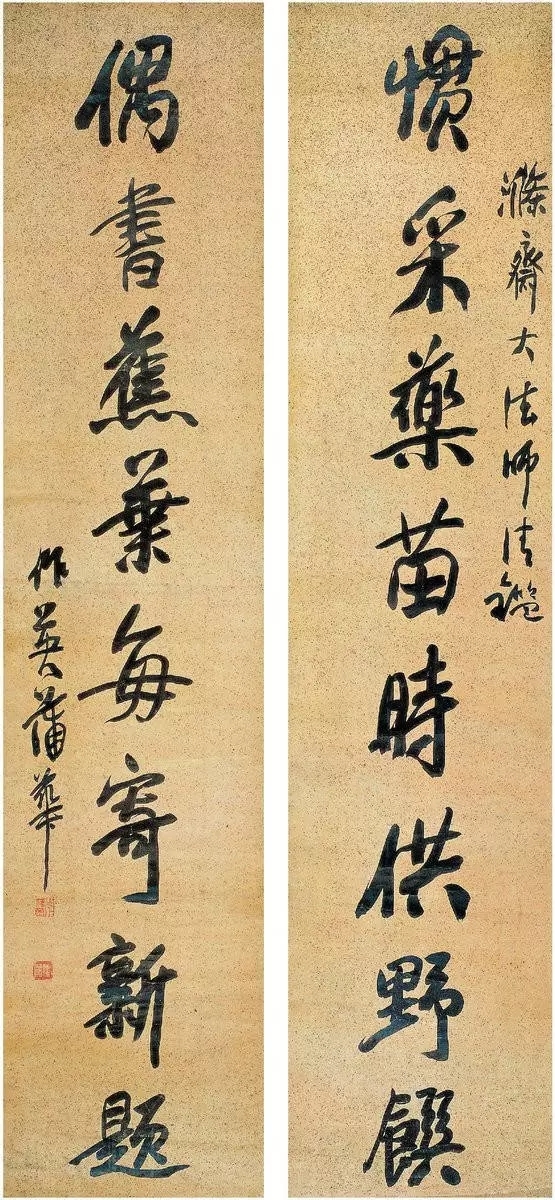 滌齋大法師法鑑
慣采藥苗時供野饌
偶書蕉葉每寄新題
作英蒲華